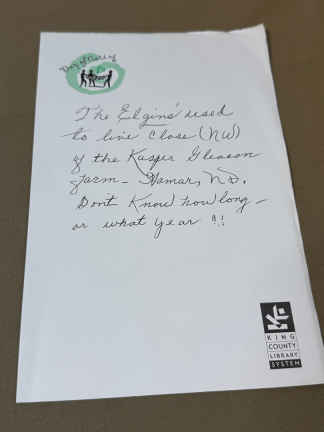 Day of Caring
The Elgins' used
to live close (NW)
of the Kasper Gleason
farm - Hamar, ND.
Don't Know how long -
or what year !!
KING
COUNTY
LIBRARY
SYSTEM